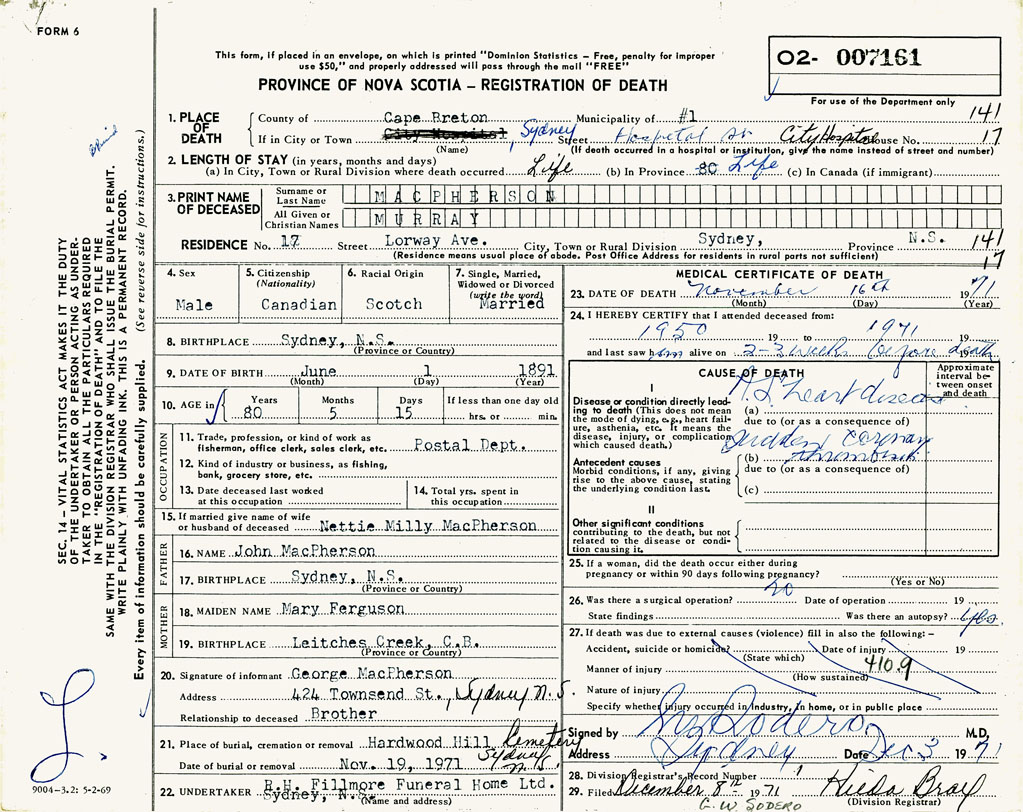 FORM 6
This form, if placed in an envelope, on which is printed "Dominion Statistics – Free, penalty for improper
use $50," and properly addressed will pass through the mail "FREE"
PROVINCE OF NOVA SCOTIA – REGISTRATION OF DEATH
02- 007161
For use of the Department only
1. PLACE OF DEATH
County of Cape Breton Municipality of #1 141
If in City or Town City Hospital Sydney Street Hospital St. City Hospital House No. 17
(Name) (If death occurred in a hospital or institution, give the name instead of street and number)
2. LENGTH OF STAY (in years, months and days)
(a) In City, Town or Rural Division where death occurred Life (b) In Province 80 Life (c) In Canada (if immigrant)
3. PRINT NAME OF DECEASED
Surname or Last Name MACPHERSON
All Given or Christian Names MURRAY
RESIDENCE No. 17 Street Lorway Ave. City, Town or Rural Division Sydney, Province N.S. 141
(Residence means usual place of abode. Post Office Address for residents in rural parts not sufficient) 17
4. Sex
Male
5. Citizenship
(Nationality)
Canadian
6. Racial Origin
Scotch
7. Single, Married,
Widowed or Divorced
(write the word)
Married
8. BIRTHPLACE Sydney, N.S.
(Province or Country)
9. DATE OF BIRTH June 1 1891
(Month) (Day) (Year)
10. AGE in
Years Months Days If less than one day old
80 5 15 hrs. or min.
OCCUPATION
11. Trade, profession, or kind of work as
fisherman, office clerk, sales clerk, etc. Postal Dept.
12. Kind of industry or business, as fishing,
bank, grocery store, etc.
13. Date deceased last worked
at this occupation
14. Total yrs. spent in
this occupation
15. If married give name of wife
or husband of deceased Nettie Milly MacPherson
FATHER
16. NAME John MacPherson
17. BIRTHPLACE Sydney, N.S.
(Province or Country)
MOTHER
18. MAIDEN NAME Mary Ferguson
19. BIRTHPLACE Leitches Creek, C.B.
(Province or Country)
20. Signature of informant George MacPherson
Address 424 Townsend St., Sydney N.S.
Relationship to deceased Brother
21. Place of burial, cremation or removal Hardwood Hill Cemetery
Sydney N.S.
Date of burial or removal Nov. 19, 1971
22. UNDERTAKER R.H. Fillmore Funeral Home Ltd.
Sydney, N.S. (Name and address)
MEDICAL CERTIFICATE OF DEATH
23. DATE OF DEATH November 16th 1971
(Month) (Day) (Year)
24. I HEREBY CERTIFY that I attended deceased from:
1950 19 to 1971 19
and last saw him alive on 2-3 weeks before death 19
CAUSE OF DEATH
Approximate interval between onset and death
I
Disease or condition directly leading to death (This does not mean the mode of dying, e.g., heart failure, asthenia, etc. It means the disease, injury, or complication which caused death.)
(a) A.S. heart disease
due to (or as a consequence of)
Sudden coronary
(b) thrombosis
due to (or as a consequence of)
Antecedent causes
Morbid conditions, if any, giving
rise to the above cause, stating
the underlying condition last.
(c)
II
Other significant conditions
contributing to the death, but not
related to the disease or condition causing it.
25. If a woman, did the death occur either during
pregnancy or within 90 days following pregnancy?
(Yes or No)
26. Was there a surgical operation? no Date of operation 19
State findings Was there an autopsy? Yes
27. If death was due to external causes (violence) fill in also the following: –
Accident, suicide or homicide? Date of injury 19
(State which)
Manner of injury 410.9
(How sustained)
Nature of injury
Specify whether injury occurred in industry, in home, or in public place
Signed by Sodero M.D.
Address Sydney Date Dec 3 1971
28. Division Registrar's Record Number
29. Filed December 8th 1971 Hilda
(Division Registrar)
G. W. SODERO
SEC. 14 – VITAL STATISTICS ACT MAKES IT THE DUTY
OF THE UNDERTAKER OR PERSON ACTING AS UNDER-
TAKER TO OBTAIN ALL THE PARTICULARS REQUIRED
IN THE "REGISTRATION OF DEATH" AND TO FILE THE
SAME WITH THE DIVISION REGISTRAR WHO SHALL ISSUE THE BURIAL PERMIT.
WRITE PLAINLY WITH UNFADING INK. THIS IS A PERMANENT RECORD.
Every item of information should be carefully supplied. (See reverse side for instructions.)
9004-3.2: 5-2-69